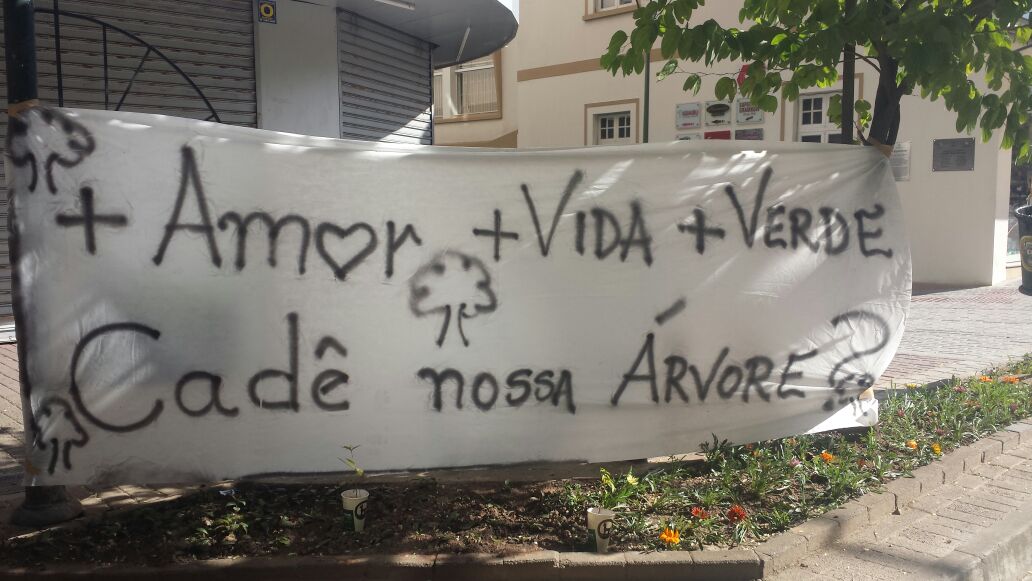 + Amor + VIDA + VERDE
Cadê nossa ÁRVORE?